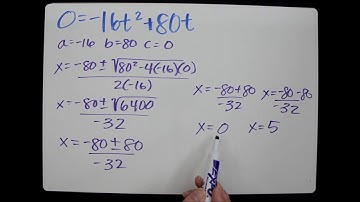 0=-16t²+80t
a=-16 b=80 c=0
x=-80±√80²-4(-16)(0)
2(-16)
x=-80±√6400
-32
x=-80±80
-32
x=-80+80
-32
x=-80-80
-32
x=0 x=5